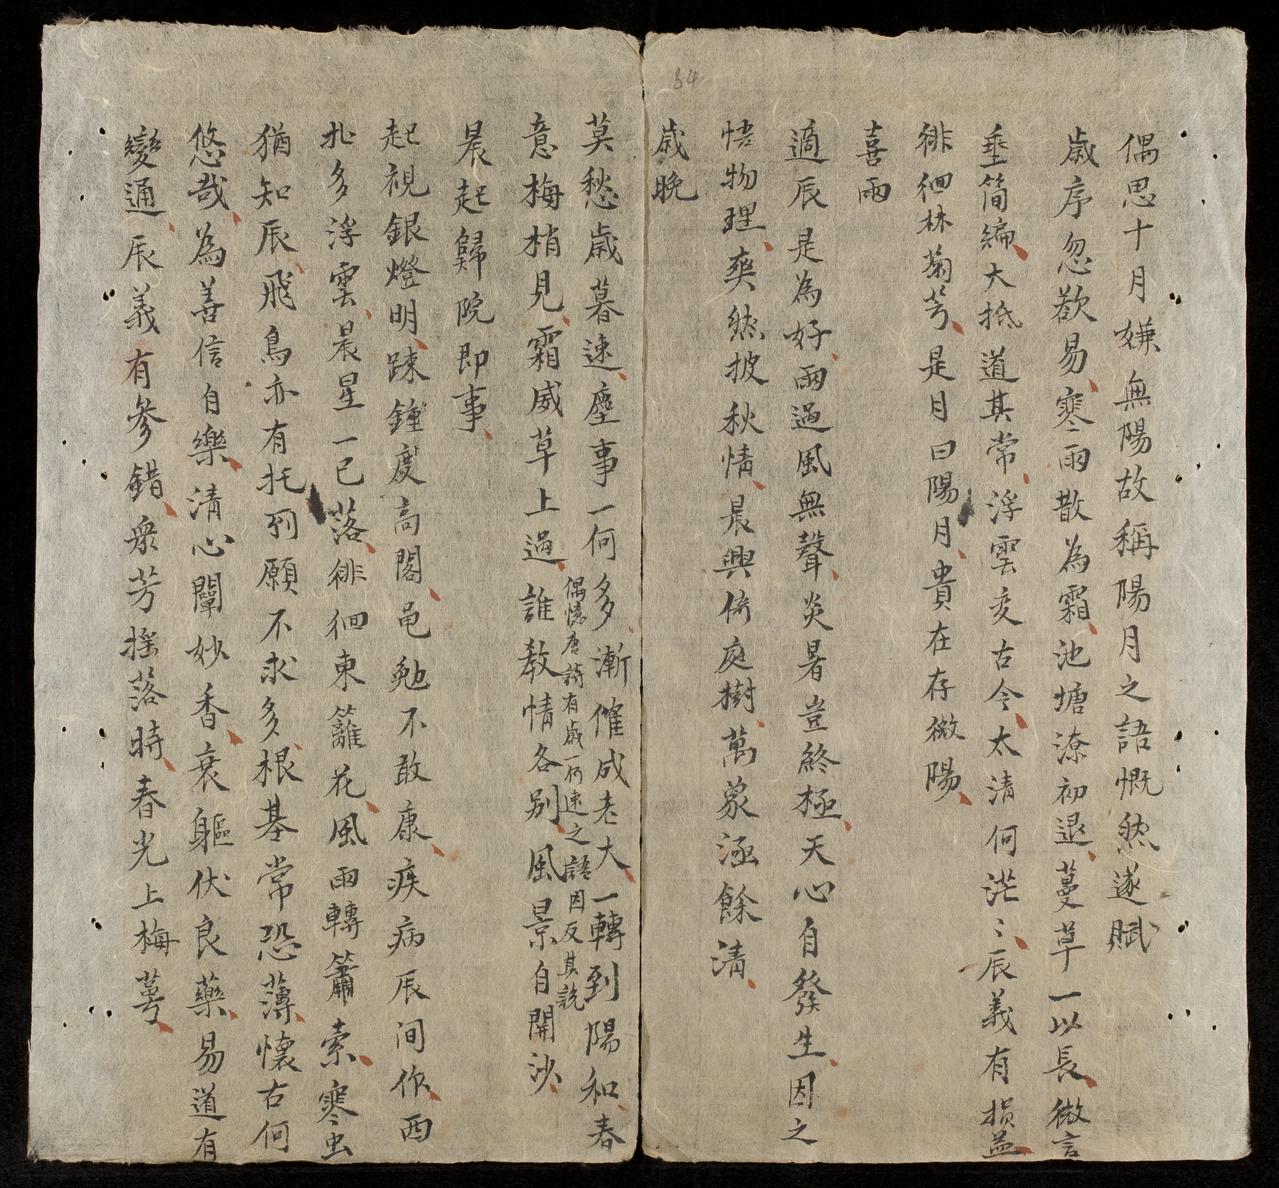 64
偶思十月嫌無陽故稱陽月之語慨然遂賦
歲序忽欲易寒雨散為霜池塘潦初退蔓草一以長微言
垂简編大抵道其常浮雲变古今太清何茫〻辰義有損益
徘徊林菊芳是月曰陽月貴在存微陽
喜雨
適辰是為好雨過風無聲炎暑豈終極天心自發生因之
悟物理爽然披秋情晨興倚庭樹萬象涵餘清
歲晚
莫愁歲暮速塵事一何多漸催成老大一轉到陽和春
意梅梢見霜威草上過誰教情各别風景自開沙
偶憶唐詩有歲一何速之語因反其說
晨起歸院即事
起視銀燈明踈鐘度高閣黽勉不敢康疾病辰间作西
北多浮雲晨星一已落徘徊東籬花風雨轉簫索寒虫
猶知辰飛鳥亦有托列願不求多根基常恐薄懷古何
悠哉為善信自樂清心闡妙香衰軀伏良藥易道有
變通辰義有參錯衆芳搖落時春光上梅萼